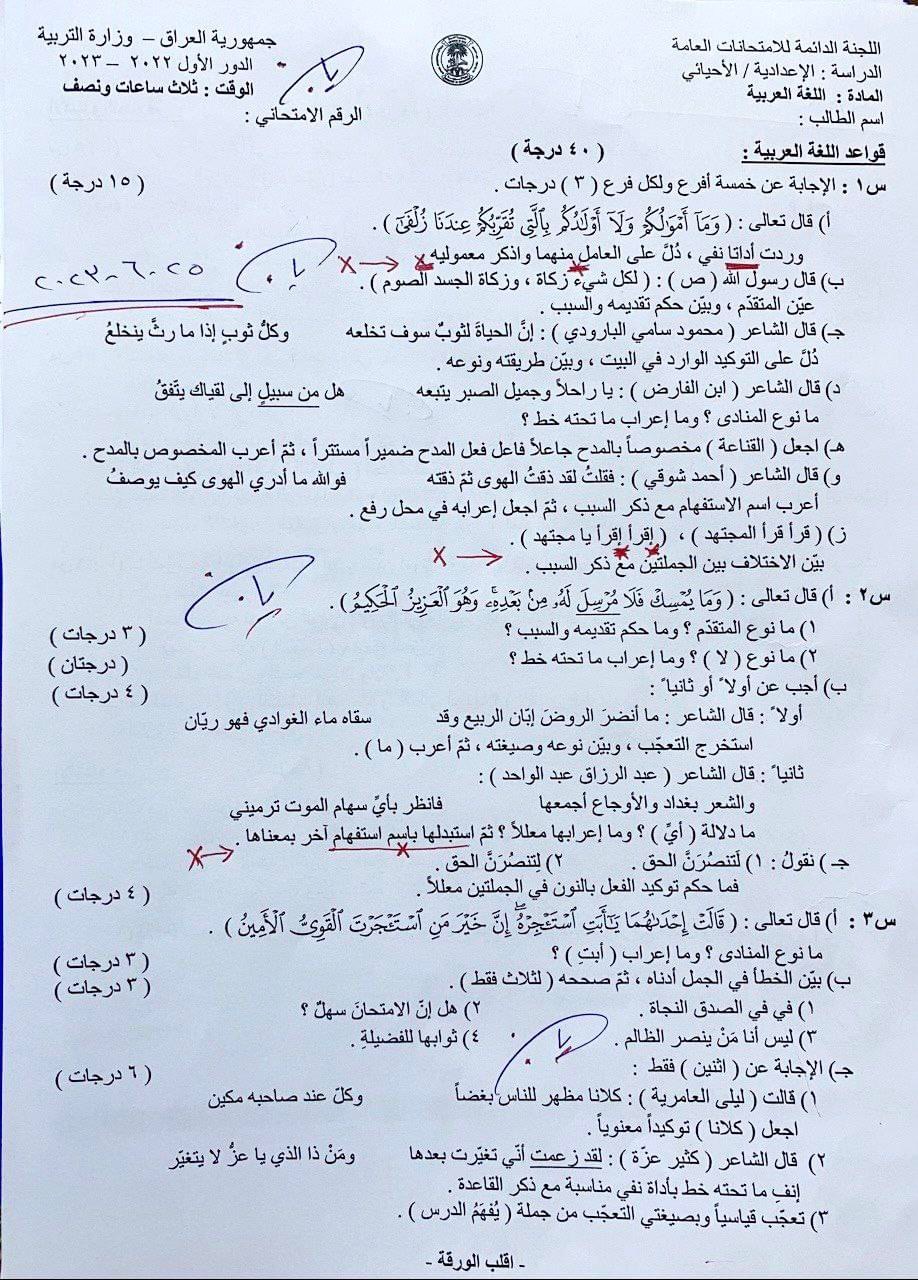 اللجنة الدائمة للامتحانات العامة
الدراسة : الإعدادية / الأحيائي
المادة : اللغة العربية
اسم الطالب :
جمهورية العراق – وزارة التربية
الدور الأول ٢٠٢٢ – ٢٠٢٣
الوقت : ثلاث ساعات ونصف
الرقم الامتحاني :
قواعد اللغة العربية : ( ٤٠ درجة )
س١ : الإجابة عن خمسة أفرع ولكل فرع ( ٣ ) درجات . ( ١٥ درجة )
أ) قال تعالى : ( وَمَآ أَمْوَٰلُكُمْ وَلَآ أَوْلَٰدُكُم بِٱلَّتِى تُقَرِّبُكُمْ عِندَنَا زُلْفَىٰٓ ) .
وردت أداتا نفي ، دُلَّ على العامل منهما واذكر معموليه
٢٠٢٣-٦-٢٥
ب) قال رسول الله ( ص ) : ( لكل شيء زكاة ، وزكاة الجسد الصوم ) .
عيّن المتقدّم ، وبيّن حكم تقديمه والسبب .
جـ) قال الشاعر ( محمود سامي البارودي ) : إنَّ الحياةَ لثوبٌ سوف تخلعه وكلُّ ثوبٍ إذا ما رثَّ ينخلعُ
دُلَّ على التوكيد الوارد في البيت ، وبيّن طريقته ونوعه .
د) قال الشاعر ( ابن الفارض ) : يا راحلاً وجميل الصبر يتبعه هل من سبيلٍ إلى لقياك يتّفقُ
ما نوع المنادى ؟ وما إعراب ما تحته خط ؟
هـ) اجعل ( القناعة ) مخصوصاً بالمدح جاعلاً فاعل فعل المدح ضميراً مستتراً ، ثمّ أعرب المخصوص بالمدح .
و) قال الشاعر ( أحمد شوقي ) : فقلتُ لقد ذقتُ الهوى ثمّ ذقته فوالله ما أدري الهوى كيف يوصفُ
أعرب اسم الاستفهام مع ذكر السبب ، ثمّ اجعل إعرابه في محل رفع .
ز) ( قرأ قرأ المجتهد ) ، ( إقرأ إقرأ يا مجتهد ) .
بيّن الاختلاف بين الجملتين مع ذكر السبب .
س٢ : أ) قال تعالى : ( وَمَا يُمْسِكْ فَلَا مُرْسِلَ لَهُۥ مِنۢ بَعْدِهِۦ وَهُوَ ٱلْعَزِيزُ ٱلْحَكِيمُ ) .
١) ما نوع المتقدّم ؟ وما حكم تقديمه والسبب ؟ ( ٣ درجات )
٢) ما نوع ( لا ) ؟ وما إعراب ما تحته خط ؟ ( درجتان )
ب) أجب عن أولاً أو ثانياً : ( ٤ درجات )
أولاً : قال الشاعر : ما أنضرَ الروضَ إبّان الربيع وقد سقاه ماء الغوادي فهو ريّان
استخرج التعجّب ، وبيّن نوعه وصيغته ، ثمّ أعرب ( ما ) .
ثانياً : قال الشاعر ( عبد الرزاق عبد الواحد ) :
والشعر بغداد والأوجاع أجمعها فانظر بأيِّ سهام الموت ترميني
ما دلالة ( أيِّ ) ؟ وما إعرابها معللاً ؟ ثمّ استبدلها باسم استفهام آخر بمعناها .
جـ) نقولُ : ١) لَتنصُرَنَّ الحق . ٢) لِتنصُرَنَّ الحق .
فما حكم توكيد الفعل بالنون في الجملتين معللاً . ( ٤ درجات )
س٣ : أ) قال تعالى : ( قَالَتْ إِحْدَىٰهُمَا يَٰٓأَبَتِ ٱسْتَـْٔجِرْهُ إِنَّ خَيْرَ مَنِ ٱسْتَـْٔجَرْتَ ٱلْقَوِىُّ ٱلْأَمِينُ ) .
ما نوع المنادى ؟ وما إعراب ( أبتِ ) ؟ ( ٣ درجات )
ب) بيّن الخطأ في الجمل أدناه ، ثمّ صححه ( لثلاث فقط ) . ( ٣ درجات )
١) في في الصدق النجاة . ٢) هل إنّ الامتحانَ سهلٌ ؟
٣) ليس أنا مَنْ ينصر الظالم . ٤) ثوابها للفضيلةِ .
جـ) الإجابة عن ( اثنين ) فقط : ( ٦ درجات )
١) قالت ( ليلى العامرية ) : كلانا مظهر للناس بغضاً وكلّ عند صاحبه مكين
اجعل ( كلانا ) توكيداً معنوياً .
٢) قال الشاعر ( كثير عزّة ) : لقد زعمت أنّي تغيّرت بعدها ومَنْ ذا الذي يا عزُّ لا يتغيّر
إنفِ ما تحته خط بأداة نفي مناسبة مع ذكر القاعدة .
٣) تعجّب قياسياً وبصيغتي التعجّب من جملة ( يُفهَمُ الدرس ) .
- اقلب الورقة -